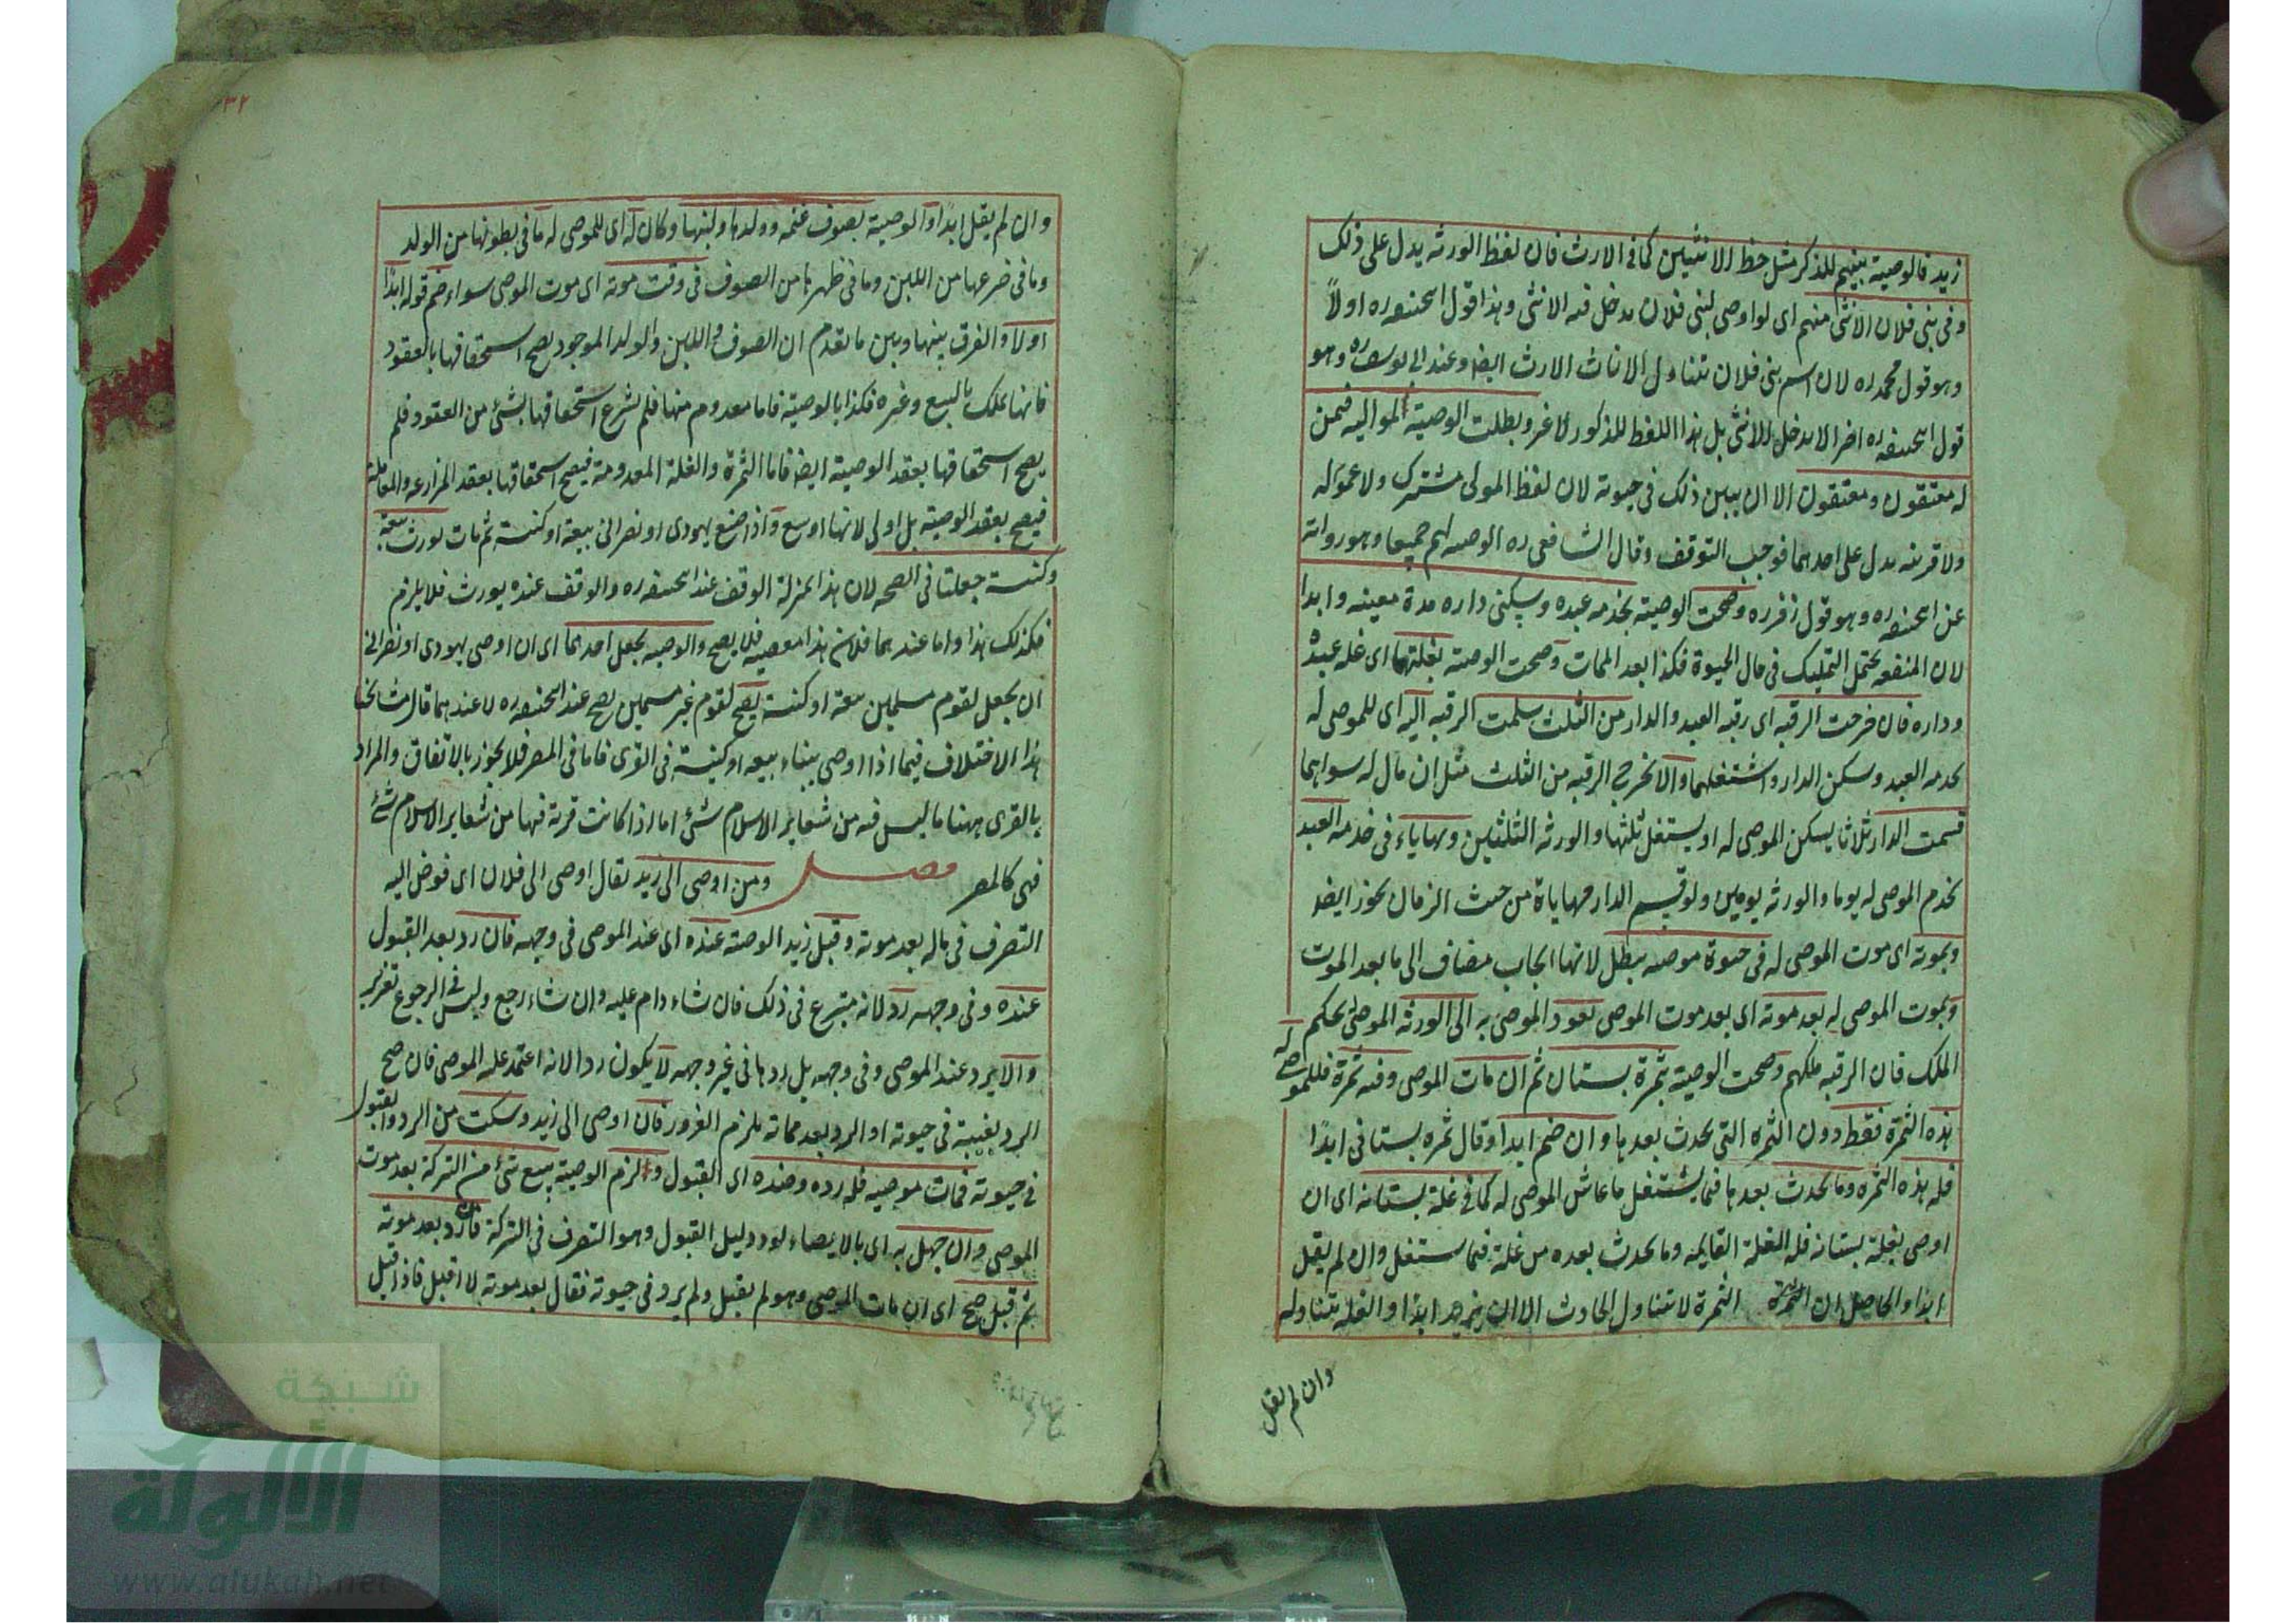 زيد فالوصية بينهم للذكر مثل حظ الانثيين كما فى الارث فان لفظ الورثه يدل على ذلك
وفى بنى فلان الانثى منهم اى لو اوصى لبنى فلان يدخل فيه الانثى وهذا قول ابحنيفه ره اولاً
وهو قول محمد ره لان اسم بنى فلان تتناول الاناث الارث ايضا وعند ابى يوسف ره وهو
قول ابحنيفه ره اخرا لا يدخل الانثى بل هذا اللفظ للذكور لا غير وبطلت الوصية لمواليه فيمن
له معتقون ومعتقون الا ان يبين ذلك فى حيوته لان لفظ المولى مشترك ولا عموم له
ولا قرينه يدل على احدهما فوجب التوقف وقال الشافعى ره الوصيه لهم جميعا وهو روايته
عن ابحنيفه ره وهو قول زفر ره وصحت الوصيته بخدمه عبده وسكنى داره مدة معينه وابدا
لان المنفعه يحتمل التمليك فى حال الحيوة فكذا بعد الممات وصحت الوصية بغلتهما اى غله عبده
وداره فان خرجت الرقبه اى رقبه العبد والدار من الثلث سلمت الرقبه اليه اى للموصى له
لخدمه العبد وسكن الدار واشتغلهما والا تخرج الرقبه من الثلث مثل ان مال له سواهما
قسمت الدار ثلاثا يسكن الموصى له او يستغل ثلثها والورثه الثلثين ويهاياء فى خدمه العبد
يخدم الموصى له يوما والورثه يومين ولو قسم الدار مهاياة من حيث الزمان يجوز ايضا
وبموته اى موت الموصى له فى حيوة موصيه يبطل لانها ايجاب مضاف الى ما بعد الموت
وبموت الموصى له بعد موته اى بعد موت الموصى يعود الموصى به الى الورثه الموصى بحكم
الملك فان الرقبه ملكهم وصحت الوصية بثمرة بستان ثم ان مات الموصى وفيه ثمرة فللموصى له
هذه الثمرة فقط دون الثمره التى يحدث بعدها وان ضم ابدا وقال ثمره بستانى ابدًا
فله هذه الثمره وما يحدث بعدها فيما يشتغل ما عاش الموصى له كما فى غلة بستانه اى ان
اوصى بغلة بستانه فله الغلة القايمه وما يحدث بعده من غلة فيما ستغل وان لم يقل
ابدا والحاصل ان الثمرة الثمرة لا تتناول الحادث الا ان يزيد ابدا والغله تتناوله
وان لم يقل
٣٢
وان لم يقل ابدًا والوصية بصوف غنمه وولدها ولبنها وكان له اى للموصى له ما فى بطونها من الولد
وما فى ضرعها من اللبن وما فى ظهرها من الصوف فى وقت موته اى موت الموصى سواء ضم قوله ابدًا
اولا والفرق بينها وبين ما تقدم ان الصوف واللبن والولد الموجود يصح استحقاقها بالعقود
فانها تملك بالبيع وغيره فكذا بالوصية فاما معدوم منها فلم يشرع استحقاقها بشئ من العقود فلم
يصح استحقاقها بعقد الوصية ايضا فاما الثمرة والغلة المعدومة فيصح استحقاقها بعقد المزارعه والمعامله
فيصح بعقد الوصيته بل اولى لانها اوسع واذا ضع يهودى او نصرانى بيعة او كنسة ثم مات يورث بيعة
وكنسة جعلتا فى الصحه لان هذا بمنزلة الوقف عند ابحنيفه ره والوقف عنده يورث فلا يلزم
فكذلك هذا واما عندهما فلان هذا معصيه فلا يصح والوصيه يجعل احدهما اى ان اوصى يهودى او نصرانى
ان يجعل لقوم مسلمين بيعة او كنسة يصح لقوم غير مسمين يصح عند ابحنيفه ره لا عندهما قال مشايخنا
هذا الاختلاف فيما اذا اوصى ببناء بيعه او كنيسة فى القرى فاما فى المصر فلا يجوز بالاتفاق والمراد
بالقرى ههنا ما ليس فيه من شعاير الاسلام شئ اما اذا كانت قرية فيها من شعاير الاسلام شئ
فهى كالمصر فصل ومن اوصى الى زيد يقال اوصى الى فلان اى فوض اليه
التصرف فى ماله بعد موته وقبل زيد الوصية عنده اى عند الموصى فى وجهه فان رد بعد القبول
عنده وفى وجهه رد لانه متبرع فى ذلك فان شاء دام عليه وان شاء رجع وليس فى الرجوع تغرير
والا يرد عند الموصى وفى وجهه بل ردها فى غير وجهه لا يكون ردا لانه اعتمد عليه الموصى فان صح
الرد بغيبة فى حيوته او الرد بعد مماته يلزم الغرور فان اوصى الى زيد وسكت من الرد والقبول
فى حيوته فمات موصيه فله رده وضده اى القبول ولزم الوصية ببيع شئ من التركة بعد موت
الموصى وان جهل به اى بالايصاء لوددليل القبول وهو التصرف فى التركة فان رد بعد موته
ثم قبل صح اى ان مات الموصى وهو لم يقبل ولم يرد فى حيوته فقال بعد موته لا اقبل فاذا قبل
شبكة
الألوكة
www.alukah.net